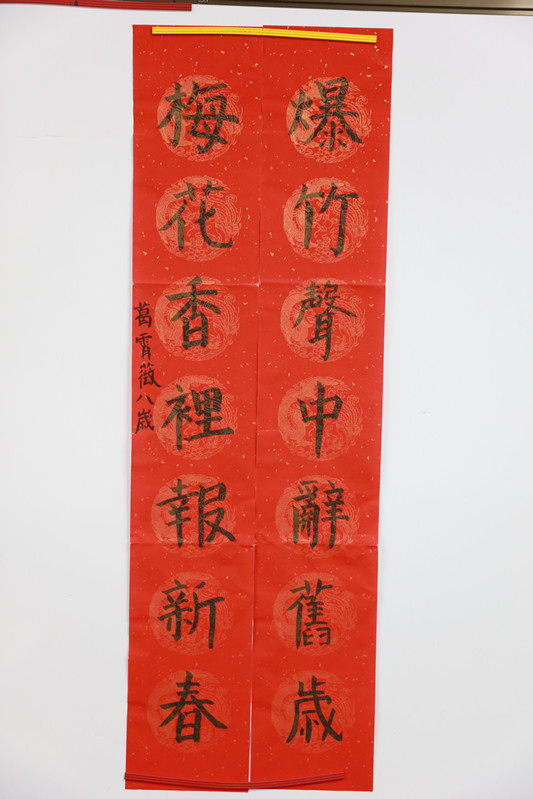 爆竹聲中辭舊歲
梅花香裡報新春
葛霄薇八歲